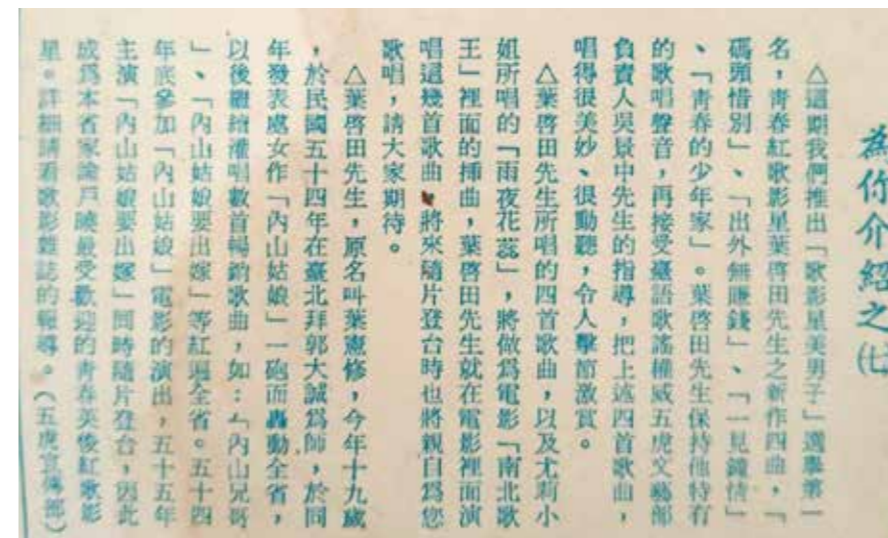 為你介紹之㈦
△這期我們推出「歌影星美男子」選舉第一
名,青春紅歌影星葉啓田先生之新作四曲,「
碼頭惜別」、「出外無賺錢」、「一見鐘情」
、「青春的少年家」。葉啓田先生保持他特有
的歌唱聲音,再接受臺語歌謠權威五虎文藝部
負責人吳景中先生的指導,把上述四首歌曲,
唱得很美妙、很動聽,令人擊節激賞。
△葉啓田先生所唱的四首歌曲,以及尤莉小
姐所唱的「雨夜花蕊」,將做爲電影「南北歌
王」裡面的插曲,葉啓田先生就在電影裡面演
唱這幾首歌曲,將來隨片登台時也將親自爲您
歌唱,請大家期待。
△葉啓田先生,原名叫葉憲修,今年十九歲
,於民國五十四年在臺北拜郭大誠爲師,於同
年發表處女作「內山姑娘」一砲而轟動全省,
以後繼續灌唱數首暢銷歌曲,如:「內山兄哥
」、「內山姑娘要出嫁」等紅遍全省。五十四
年底參加「內山姑娘」電影的演出,五十五年
主演「內山姑娘要出嫁」同時隨片登台,因此
成爲本省家諭戶曉最受歡迎的青春英俊紅歌影
星。詳細請看歌影雜誌的報導。(五虎宣傳部)